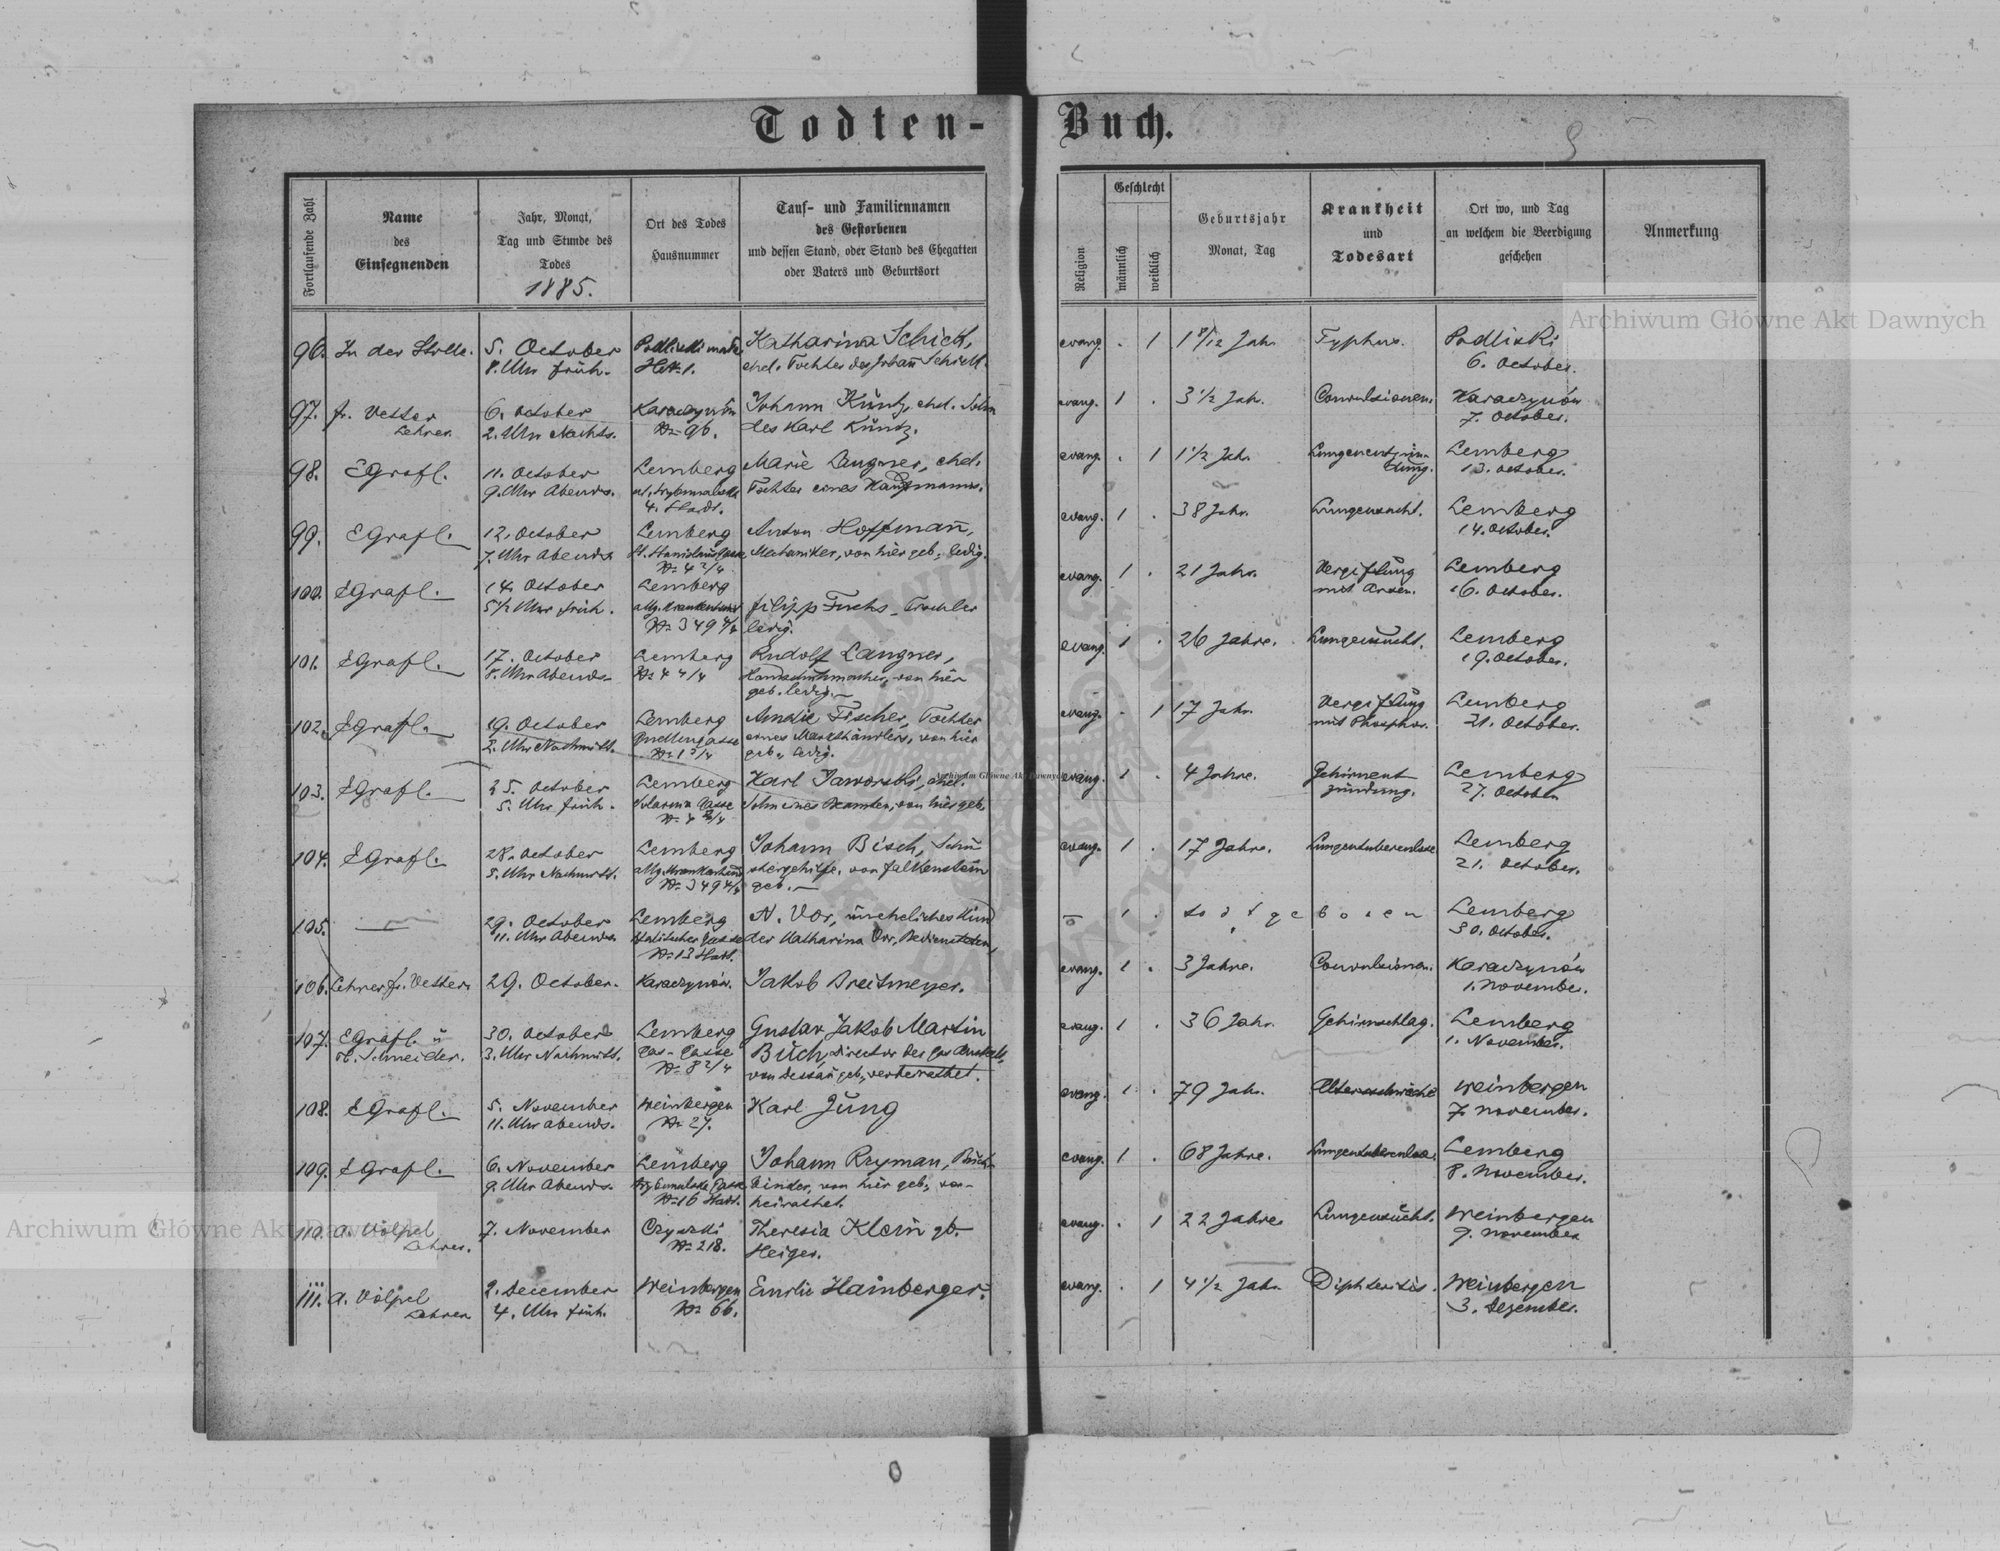 Todten-Buch.
Fortlaufende Zahl
Name
des
Einsegnenden
Jahr, Monat,
Tag und Stunde des
Todes
1885.
Ort des Todes
Hausnummer
Tauf- und Familiennamen
des Gestorbenen
und dessen Stand, oder Stand des Ehegatten
oder Vaters und Geburtsort
Religion
Geschlecht
männlich
weiblich
Geburtsjahr
Monat, Tag
Krankheit
und
Todesart
Ort wo, und Tag
an welchem die Beerdigung
geschehen
Anmerkung
96. In der Stille. 5. October Podliski małe Katharina Schick, evang. . 1 1 8/12 Jahr Typhus. Podliski
8. Uhr früh. HN. 1. ehel. Tochter des Johann Schick. 6. October.
97. fr. Vetter 6. October Karaczynów Johann Küntz, ehel. Sohn evang. 1 . 3 1/2 Jah. Convulsionen. Karaczynów
Lehrer. 2. Uhr Nachts. No 96. des Karl Küntz. 7. October.
98. EGrafl. 11. October Lemberg Marie Langner, ehel. evang. . 1 1 1/2 Jah. Lungenentzün- Lemberg
9. Uhr Abends. Tochter eines Hauptmanns. dung. 13. October.
4. Stadt.
99. EGrafl. 12. October Lemberg Anton Hoffmann, evang. 1 . 38 Jahr. Lungensucht. Lemberg
7. Uhr Abends St. Stanislaus Gasse Mechaniker, von hier geb., ledig. 14. October.
No 4 2/4
100. EGrafl. 14. October Lemberg evang. 1 . 21 Jahr. Vergiftung Lemberg
5 1/2 Uhr früh. allg. Krankenhaus filipp Fuchs, Tischler mit Arsen. 16. October.
No 349 4/4 ledig.
101. EGrafl. 17. October Lemberg Rudolf Langner, evang. 1 . 26 Jahre. Lungensucht. Lemberg
8. Uhr Abends No 4 4/4 Handschuhmacher, von hier 19. October.
geb. ledig.
102. EGrafl. 19. October Lemberg Amalie Fischer, Tochter evang. . 1 17 Jahr. Vergiftung Lemberg
2. Uhr Nachmitt. eines Markthändlers, von hier mit Phosphor. 21. October.
geb., ledig.
103. EGrafl. 25. October Lemberg Karl Jaworski, ehel. evang. 1 . 4 Jahre. Gehirnent- Lemberg
5. Uhr früh. Sohn eines Beamten, von hier geb. zündung. 27. October
104. EGrafl. 28. October Lemberg Johann Bisch, Schu- evang. 1 . 17 Jahre. Lungentuberculose Lemberg
5. Uhr Nachmitt. allg. Krankenhaus stergehilfe, von Falkenstein 21. October.
No 349 4/4 geb.
105. — 29. October Lemberg N. Vor, uneheliches Kind — 1 . todtgeboren Lemberg
11. Uhr Abends Halitscher Gasse der Katharina Vor, Bediensteten, 30. October.
No 13 Stadt.
106. Lehrer fr. Vetter. 29. October. Karaczynów. Jakob Breitmeyer. evang. 1 . 3 Jahre. Convulsionen. Karaczynów
1. November.
107. EGrafl. u 30. October Lemberg Gustav Jakob Martin evang. 1 . 36 Jahr. Gehirnschlag. Lemberg
Schneider. 3. Uhr Nachmitt. Gas-Gasse Buch, Director der Gas Anstalt, 1. November.
No 8 2/4 von Dessau geb., verheirathet.
108. EGrafl. 5. November Weinbergen Karl Jung evang. 1 . 79 Jahr. Altersschwäche Weinbergen
11. Uhr abends. No 27. 7. November.
109. EGrafl. 6. November Lemberg Johann Rzyman, Buch- evang. 1 . 68 Jahre. Lungentuberculose. Lemberg
9. Uhr Abends. binder, von hier geb., ver- 8. November.
No 16 Stadt. heirathet.
110. A. Völpel 7. November Czyszki Theresia Klein gb. evang. . 1 22 Jahre Lungensucht. Weinbergen
Lehrer. No 218. Heiger. 9. November
111. A. Völpel 2. December Weinbergen Emilie Hainberger. evang. . 1 4 1/2 Jahr. Diphteritis. Weinbergen
Lehrer 4. Uhr früh. No 66. 3. Dezember.
Archiwum Główne Akt Dawnych
Archiwum Główne Akt Dawnych
Archiwum Główne Akt Dawnych